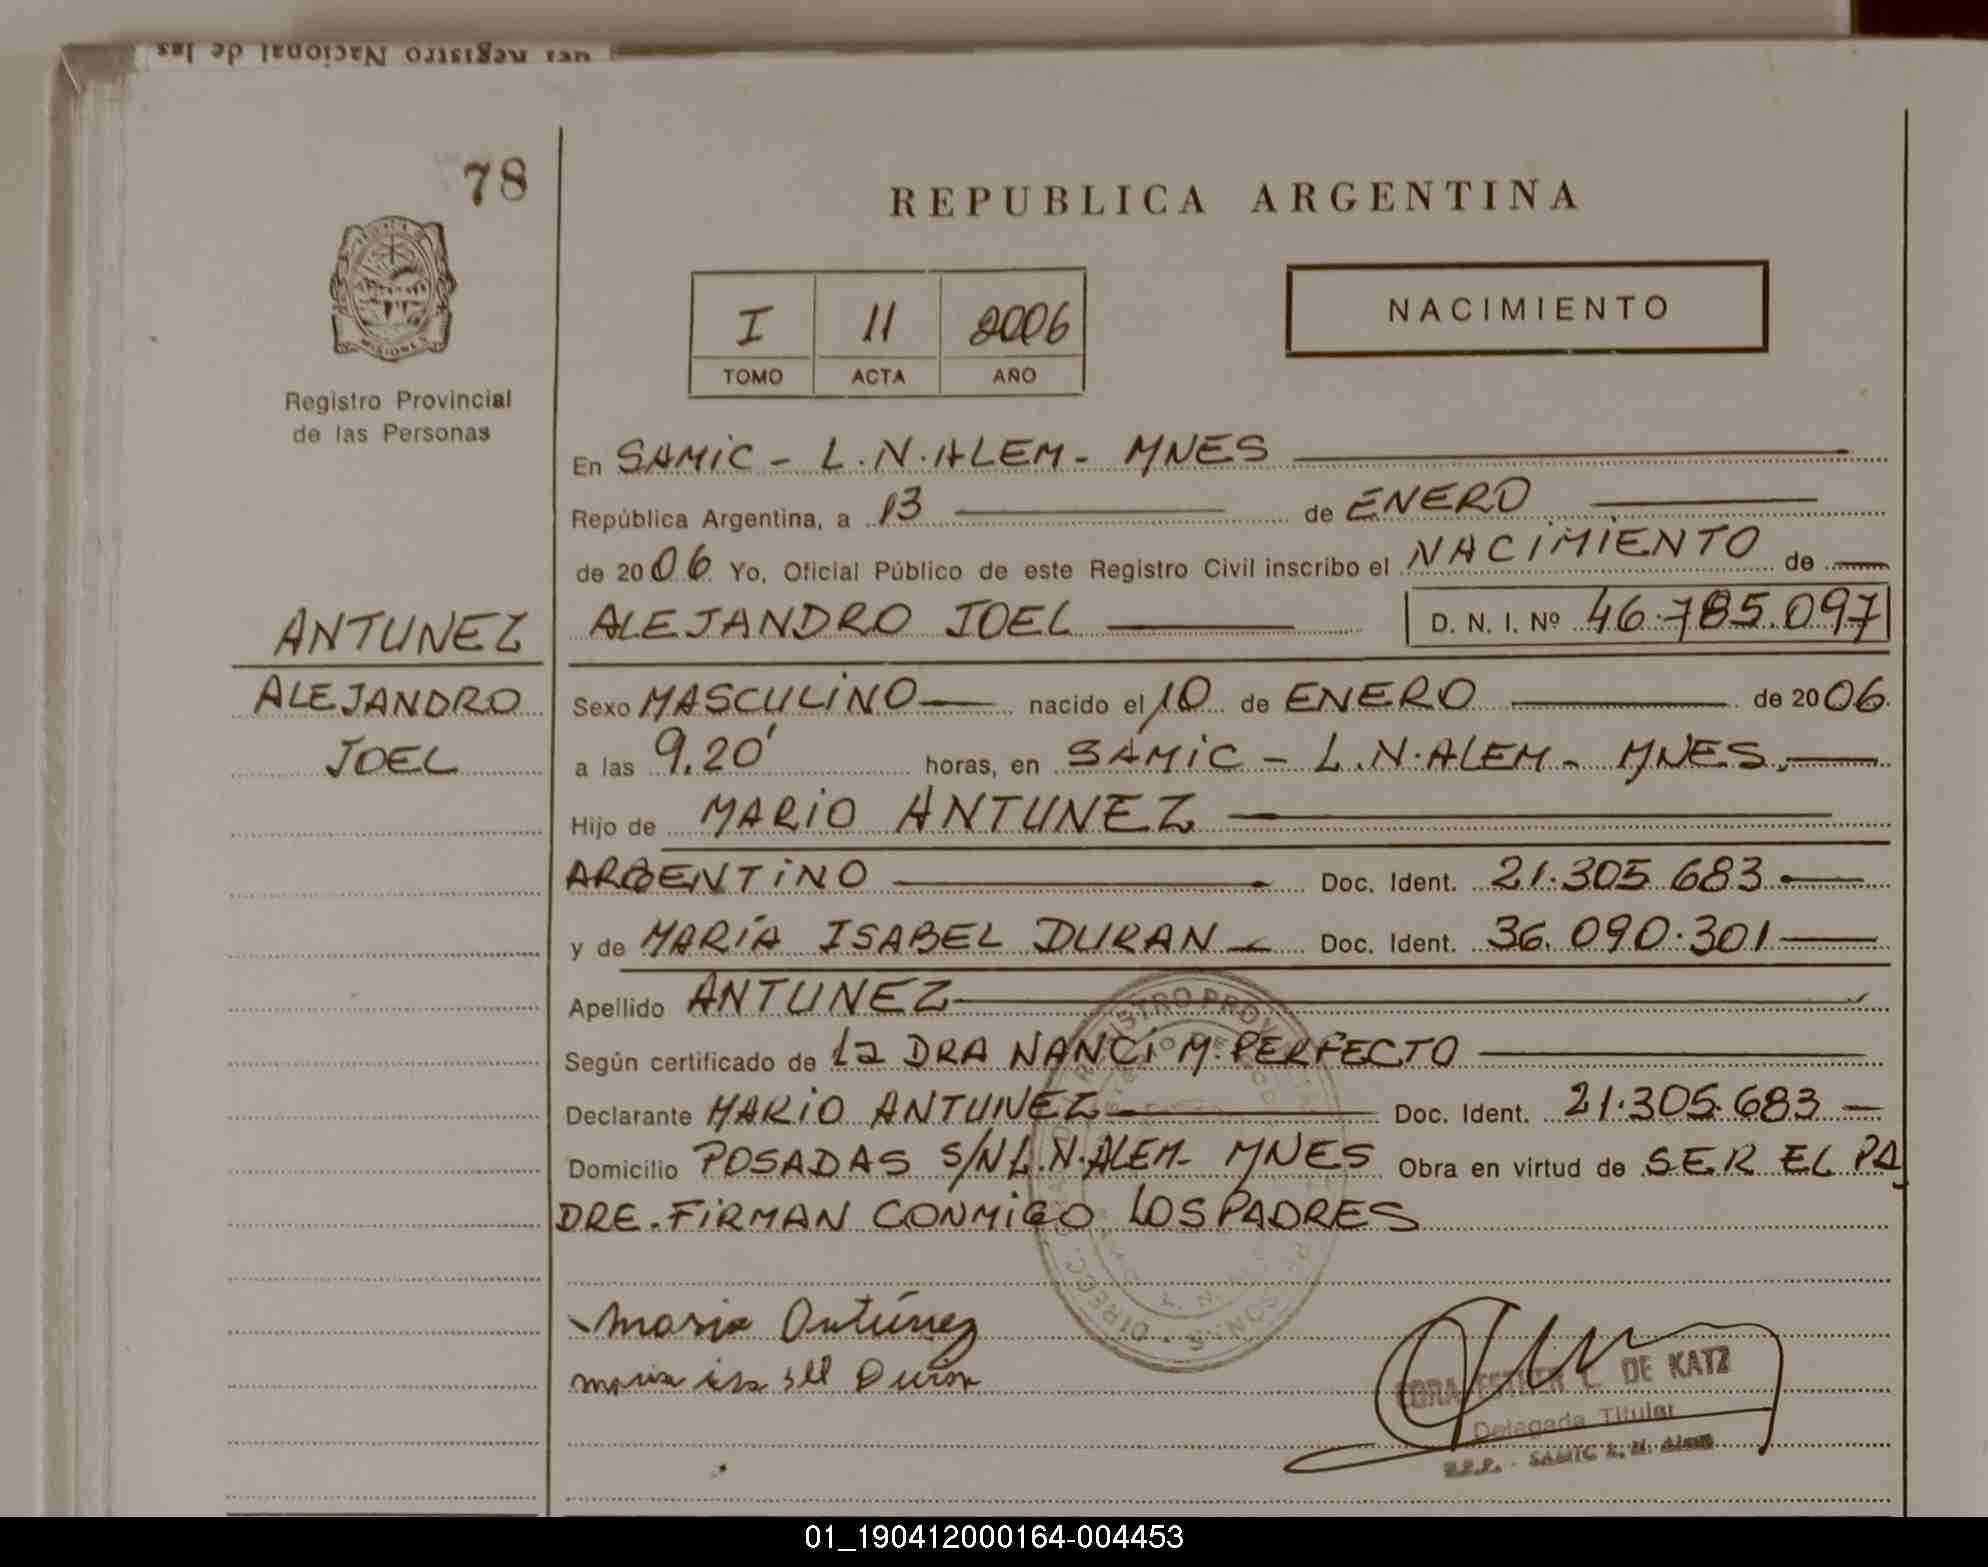 del Registro Nacional de las
78
REPUBLICA ARGENTINA
NACIMIENTO
I 11 2006
TOMO ACTA AÑO
MISIONES
Registro Provincial
de las Personas
En SAMIC - L.N.ALEM - MNES
República Argentina, a 13 de ENERO
de 2006 Yo, Oficial Público de este Registro Civil inscribo el NACIMIENTO de
ANTUNEZ
ALEJANDRO JOEL D. N. I. Nº 46.785.097
ALEJANDRO
Sexo MASCULINO nacido el 10 de ENERO de 2006.
JOEL
a las 9.20' horas, en SAMIC - L.N.ALEM - MNES.
Hijo de MARIO ANTUNEZ
ARGENTINO Doc. Ident. 21.305.683
y de MARÍA ISABEL DURAN Doc. Ident. 36.090.301
Apellido ANTUNEZ
Según certificado de la DRA NANCI M. PERFECTO
Declarante MARIO ANTUNEZ Doc. Ident. 21.305.683
Domicilio POSADAS S/N L.N.ALEM - MNES Obra en virtud de SER EL PA
DRE. FIRMAN CONMIGO LOS PADRES
REGISTRO PROVINCIAL DE LAS PERSONAS
Mario Antúnez
maria isabell Duran
CORA ESTHER L. DE KATZ
Delegada Titular
R.P.P. - SAMIC L. N. Alem
01_190412000164-004453